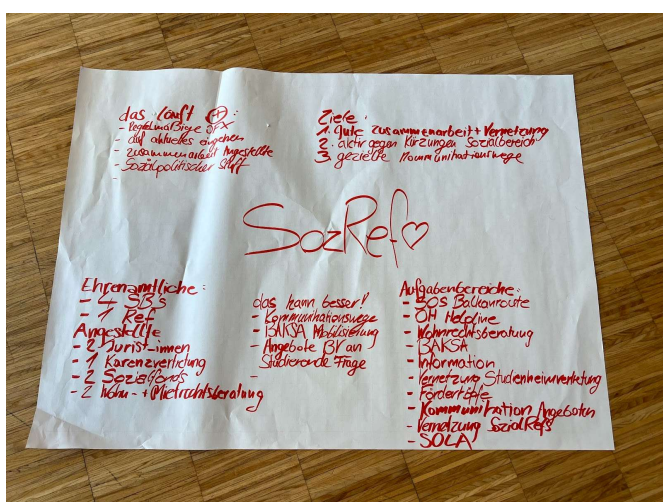 das läuft +
- Regelmäßige JFX
- auf aktuelles eingehen
- zusammenarbeit Angestellte
- Sozialpolitischer Stuff
-
Ziele:
1. gute zusammenarbeit + Vernetzung
2. aktiv gegen Kürzungen Sozialbereich
3 gezielte Kommunikationswege
SozRef♡
Ehrenamtliche:
- 4 SBs
- 1 Ref
Angestellte
- 2 Jurist_innen
- 1 Karenzvertretung
- 2 Sozialfonds
- 2 Wohn- + Mietrechtsberatung
das kann besser!
- Kommunikationswege
- BAKSA Mobilisierung
- Angebote BV an
Studierende Frage
-
Aufgabenbereiche:
- SOS Balkanroute
- ÖH Helpline
- Wohnrechtsberatung
- BAKSA
- Information
- Vernetzung Studienheimvertretung
- Fördertöpfe
- Kommunikation Angeboten
- Vernetzung SozialRefs
- SOLA